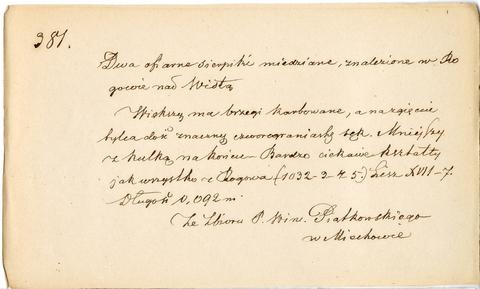 381.
Dwa ofiarne sierpiki miedziane, znalezione w Ro
gowie nad Wisłą
Większy ma brzegi karbowane, a na zgięcie
tylca dość znaczny czworograniasty sęk. Mniejszy
z kulką na końcu Bardzo ciekawe kształty
jak wszystko z Rogowa (1032-3 4 5.) Lesz XVII-7.
Długość 0,092 m
Ze zbioru P. Win. Piątkowskiego
w Miechowie